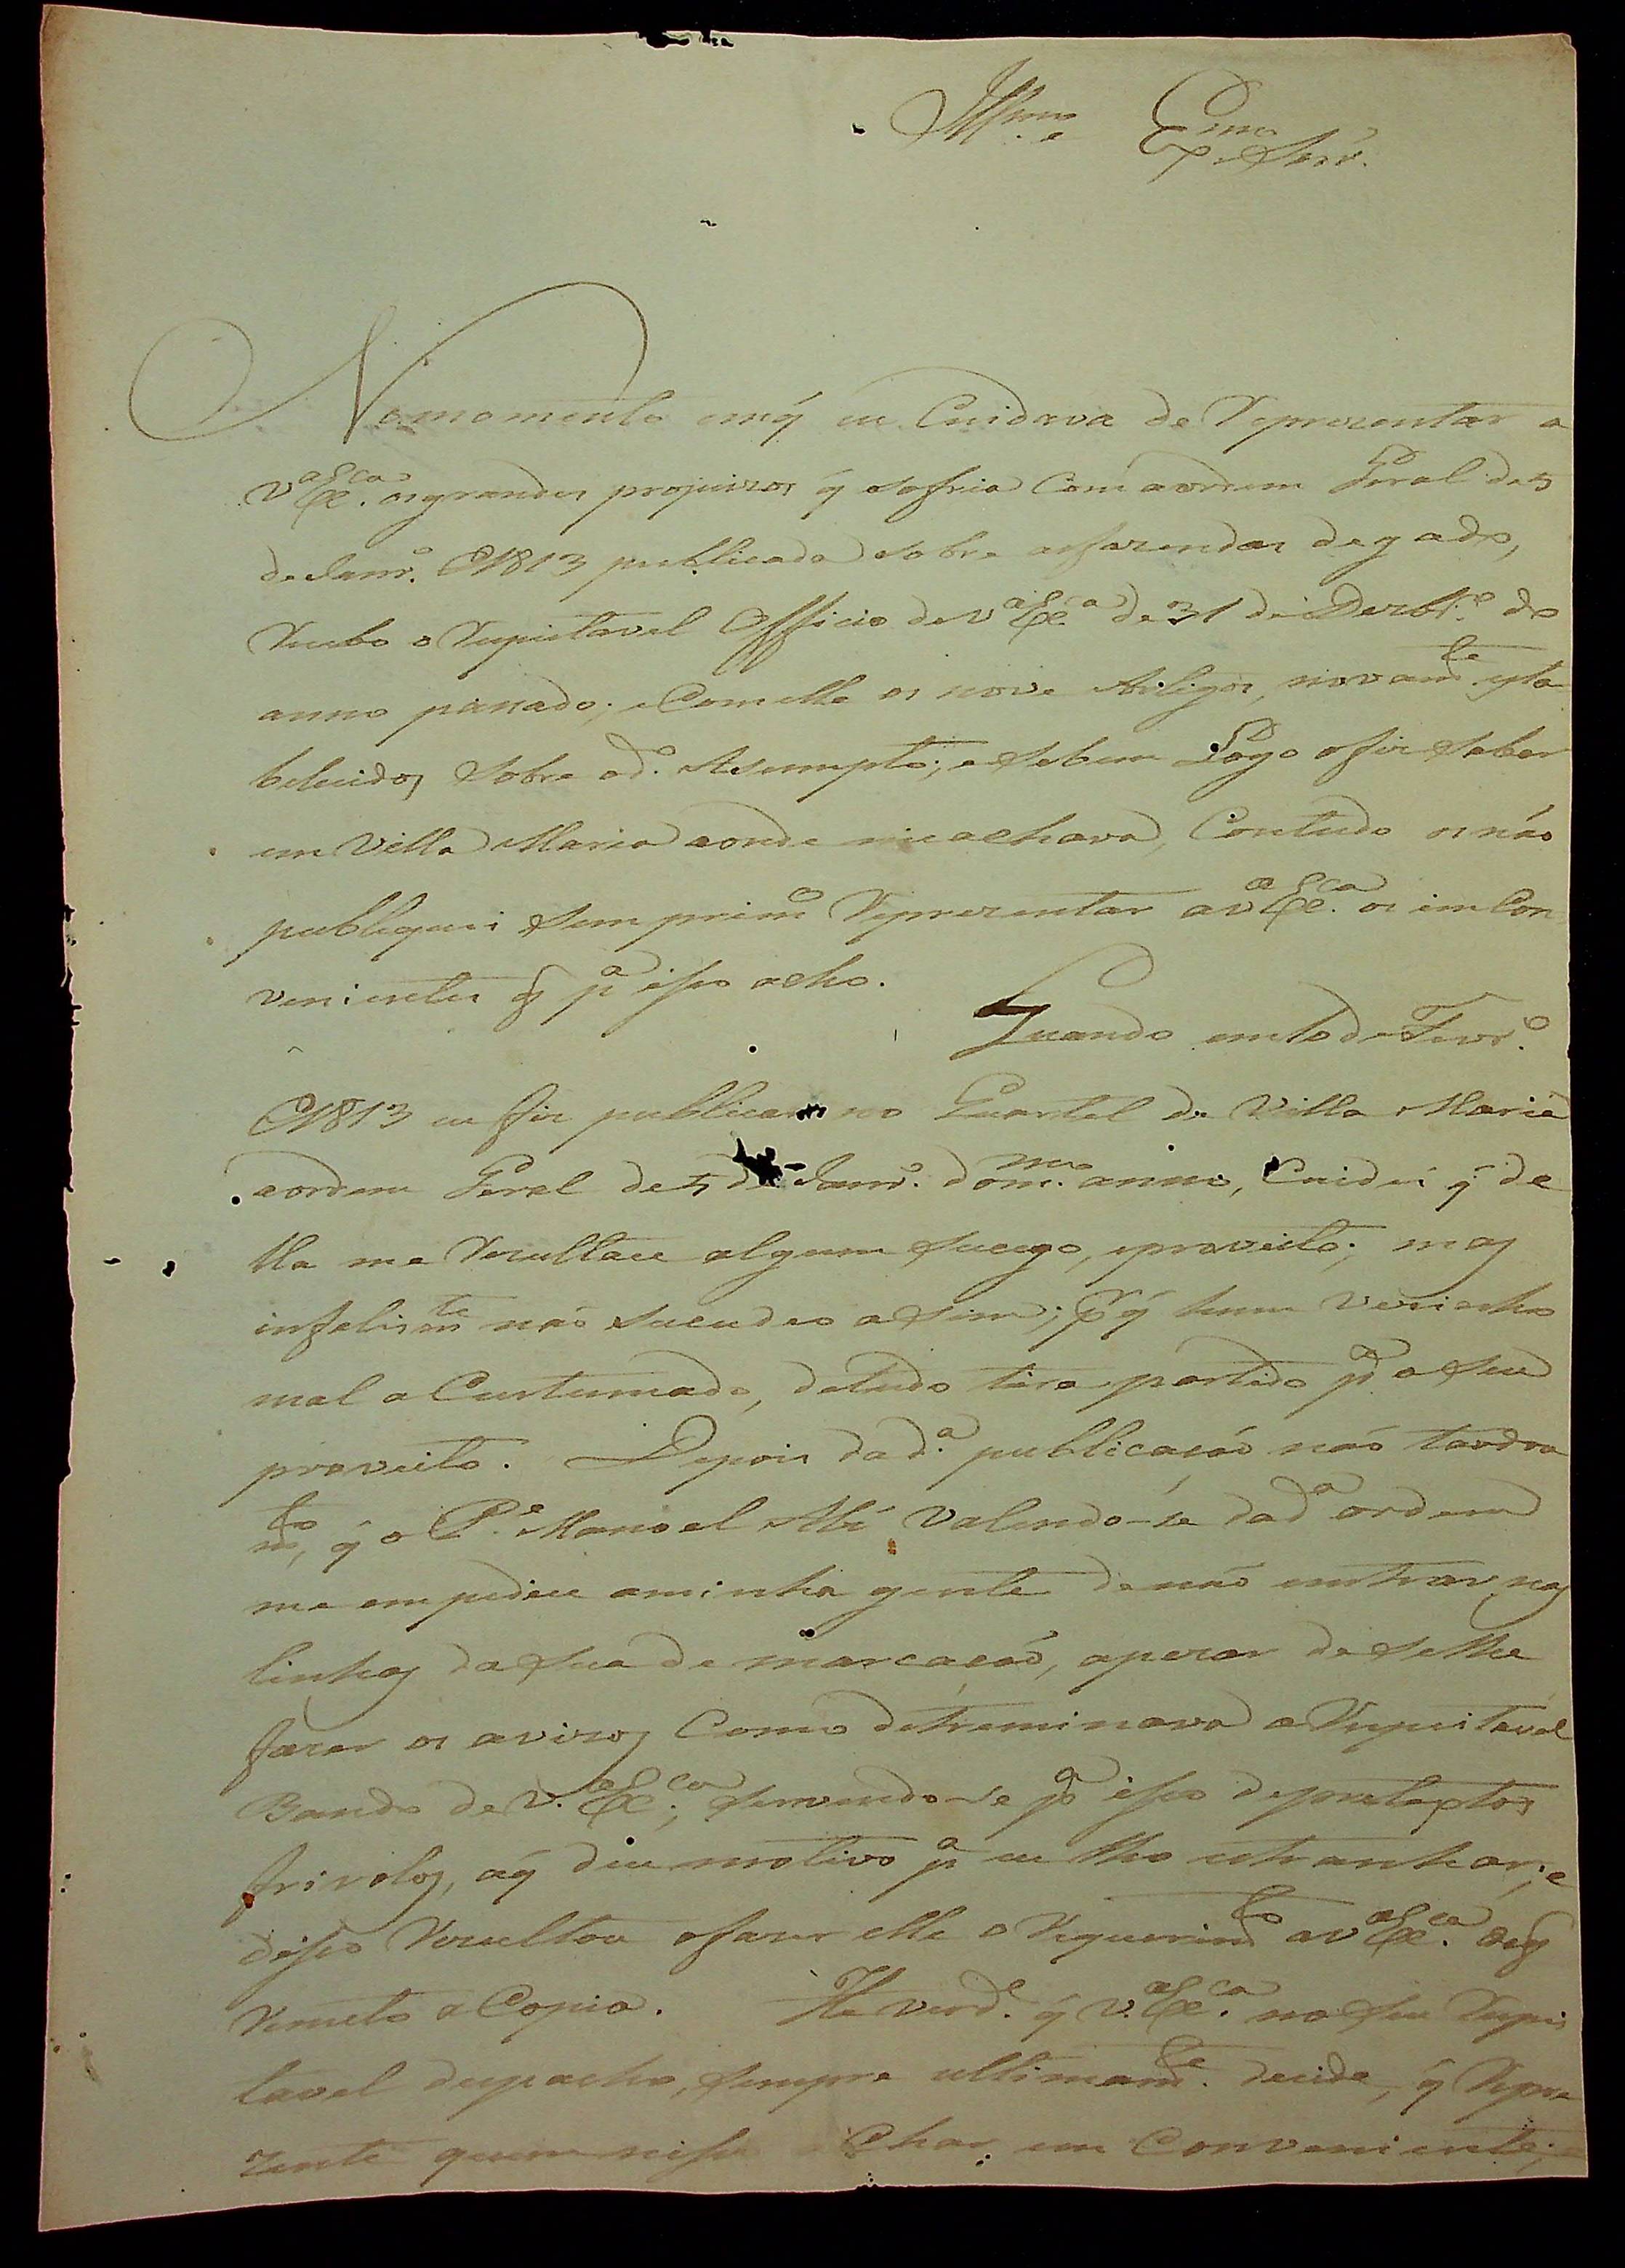 Illmo. e Exmo. Senr.
No momento em q̃ eu Cuidava de Reprezentar a
Va. Exca. os grandes projuizos q̃ sofria Com a ordem Geral de 5
de Janro. @1813 publicada sobre as fazendas de gado,
Recebo o Respeitavel Officio de Va. Exca. de 31 de Dezbro. do
anno pasado; e Com elle os nove Artigos, novamte. esta
belecidos sobre o do. Asumpto; e se bem Logo o fiz saber
em Villa Maria aonde me achava, Contudo os não
publiquei sem primo. Reprezentar a Va. Exca. os imCon
venientes q̃ pa. isso acho.
Quando em 10 de Fevro.
@1813 eu fiz publicar no Quartel de Villa Maria
a ordem Geral de 5 de Janro. do mo. anno, Cuidei q̃ de
lla me Rezultace algum sucego, e proveito; mas
infelismte. não sucedeo asim; pr. q̃ hum Vesinho
mal aCustumado, de tudo tira partido pa. o seu
proveito. Depois da da. publicação não tardou
mto., q̃ o Pe. Manoel Alz̃ Valendo-se da da. ordem
me empedice a minha gente de não emtrar nas
linhas da sua demarcação, apezar de se lhe
fazer os avizos Como detreminava o Respeitavel
Bando de V. Exca.; servindo-se pa. isso de pretextos
frivolos, o q̃ deu motivo pa. eu lho estranhar; e
disso Rezultou o fazer elle o Requerimto. a Va. Exca. de q̃
Remeto a Copia. He verde. q̃ V. Exca. no seu Respei
tavel despacho, sempre ultimamte. decide, q̃ Repre
zente quem nisso achar emConveniente;